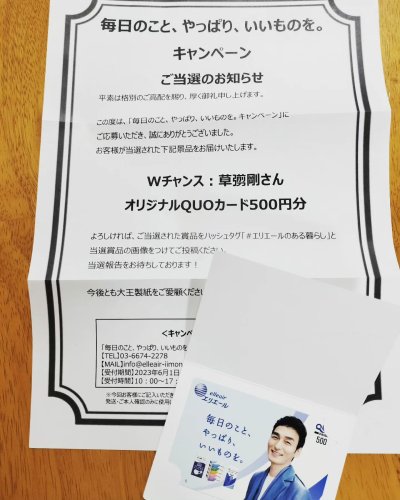 毎日のこと、やっぱり、いいものを。
キャンペーン
ご当選のお知らせ
平素は格別のご高配を賜り、厚く御礼申し上げます。
この度は、「毎日のこと、やっぱり、いいものを。キャンペーン」に
ご応募いただき、誠にありがとうございました。
お客様が当選された下記景品をお届けいたします。
Wチャンス:草彅剛さん
オリジナルQUOカード500円分
よろしければ、ご当選された賞品をハッシュタグ「#エリエールのある暮らし」と
当選賞品の画像をつけてご投稿ください
当選報告をお待ちしております!
今後とも大王製紙をご愛顧くださ
<キャンペ
「毎日のこと、やっぱり、いいものを
【TEL】03-6674-2278
【MAIL】info@elleair-iimon
【受付期間】2023年6月1日
【受付時間】10:00~17:
※今回お客様にご記入いただき
発送・ご本人確認のみに使用
elleair
エリエール
QUO
500
毎日のこと、
やっぱり、
いいものを。